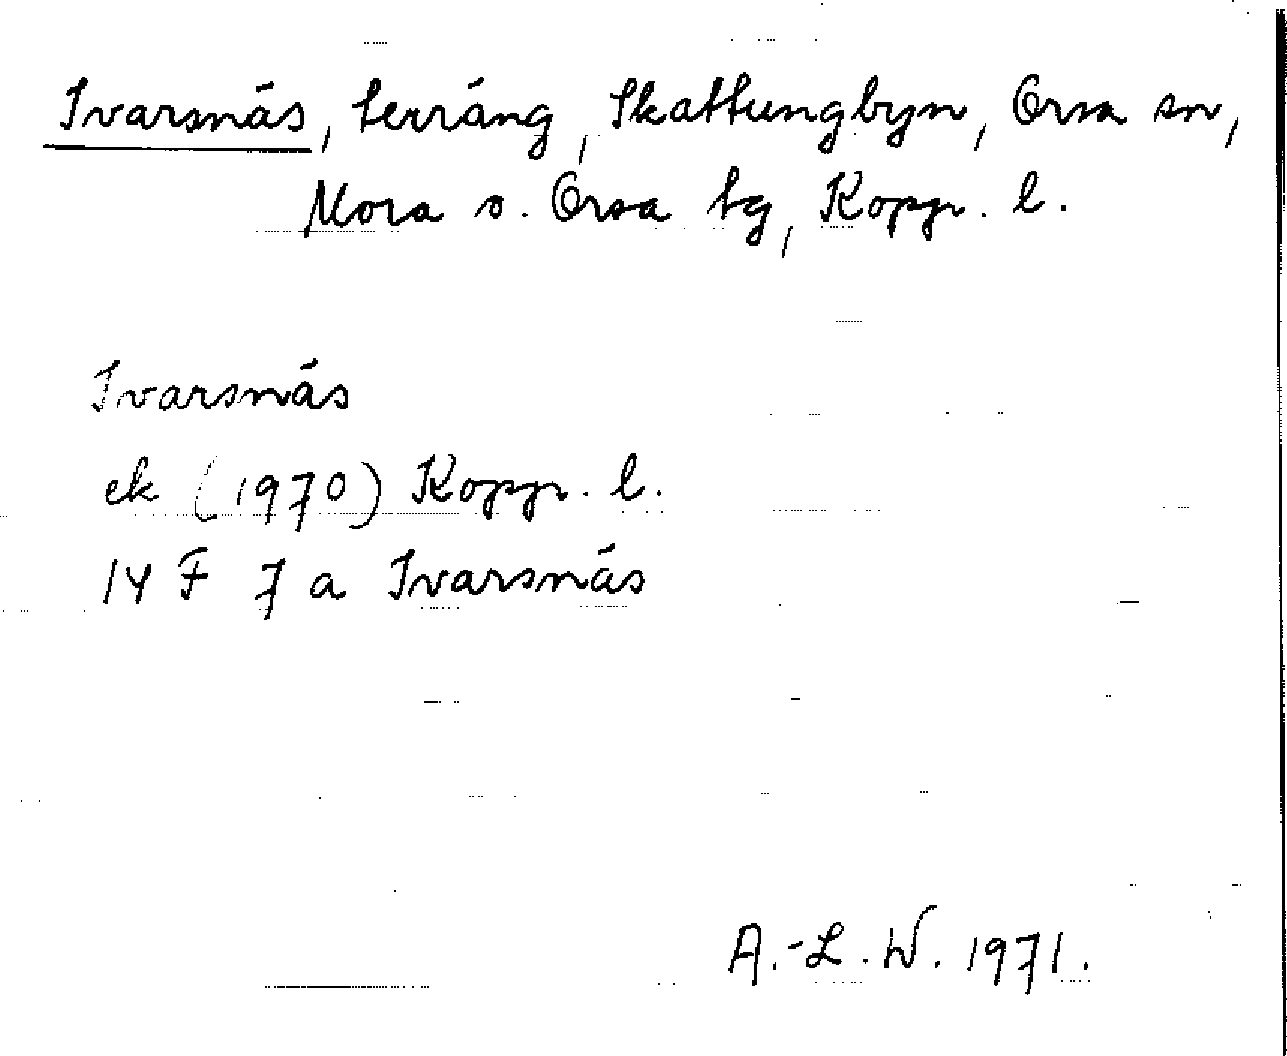 Ivarsnäs, terräng, Skattungbyn, Orsa sn,
Mora o. Orsa tg, Kopp. l.
Ivarsnäs
ek (1970) Kopp. l.
14 F 7 a Ivarsnäs
A.-L. W. 1971.